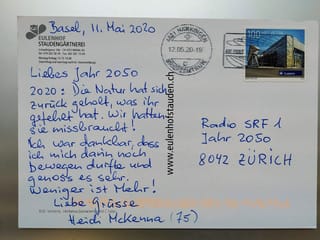 EULENHOF
STAUDENGÄRTNEREI
Basel, 11. Mai 2020
Liebes Jahr 2050
2020: Die Natur hat sich
zurück geholt, was ihr
gefehlt hat. Wir hatten
sie missbraucht!
Ich war dankbar, dass
ich mich darin noch
bewegen durfte und
genoss es sehr.
Weniger ist Mehr!
Liebe Grüsse
Heidi McKenna (75)
www.eulenhofstauden.ch
12.05.20-19
100
Radio SRF 1
Jahr 2050
8042 ZÜRICH